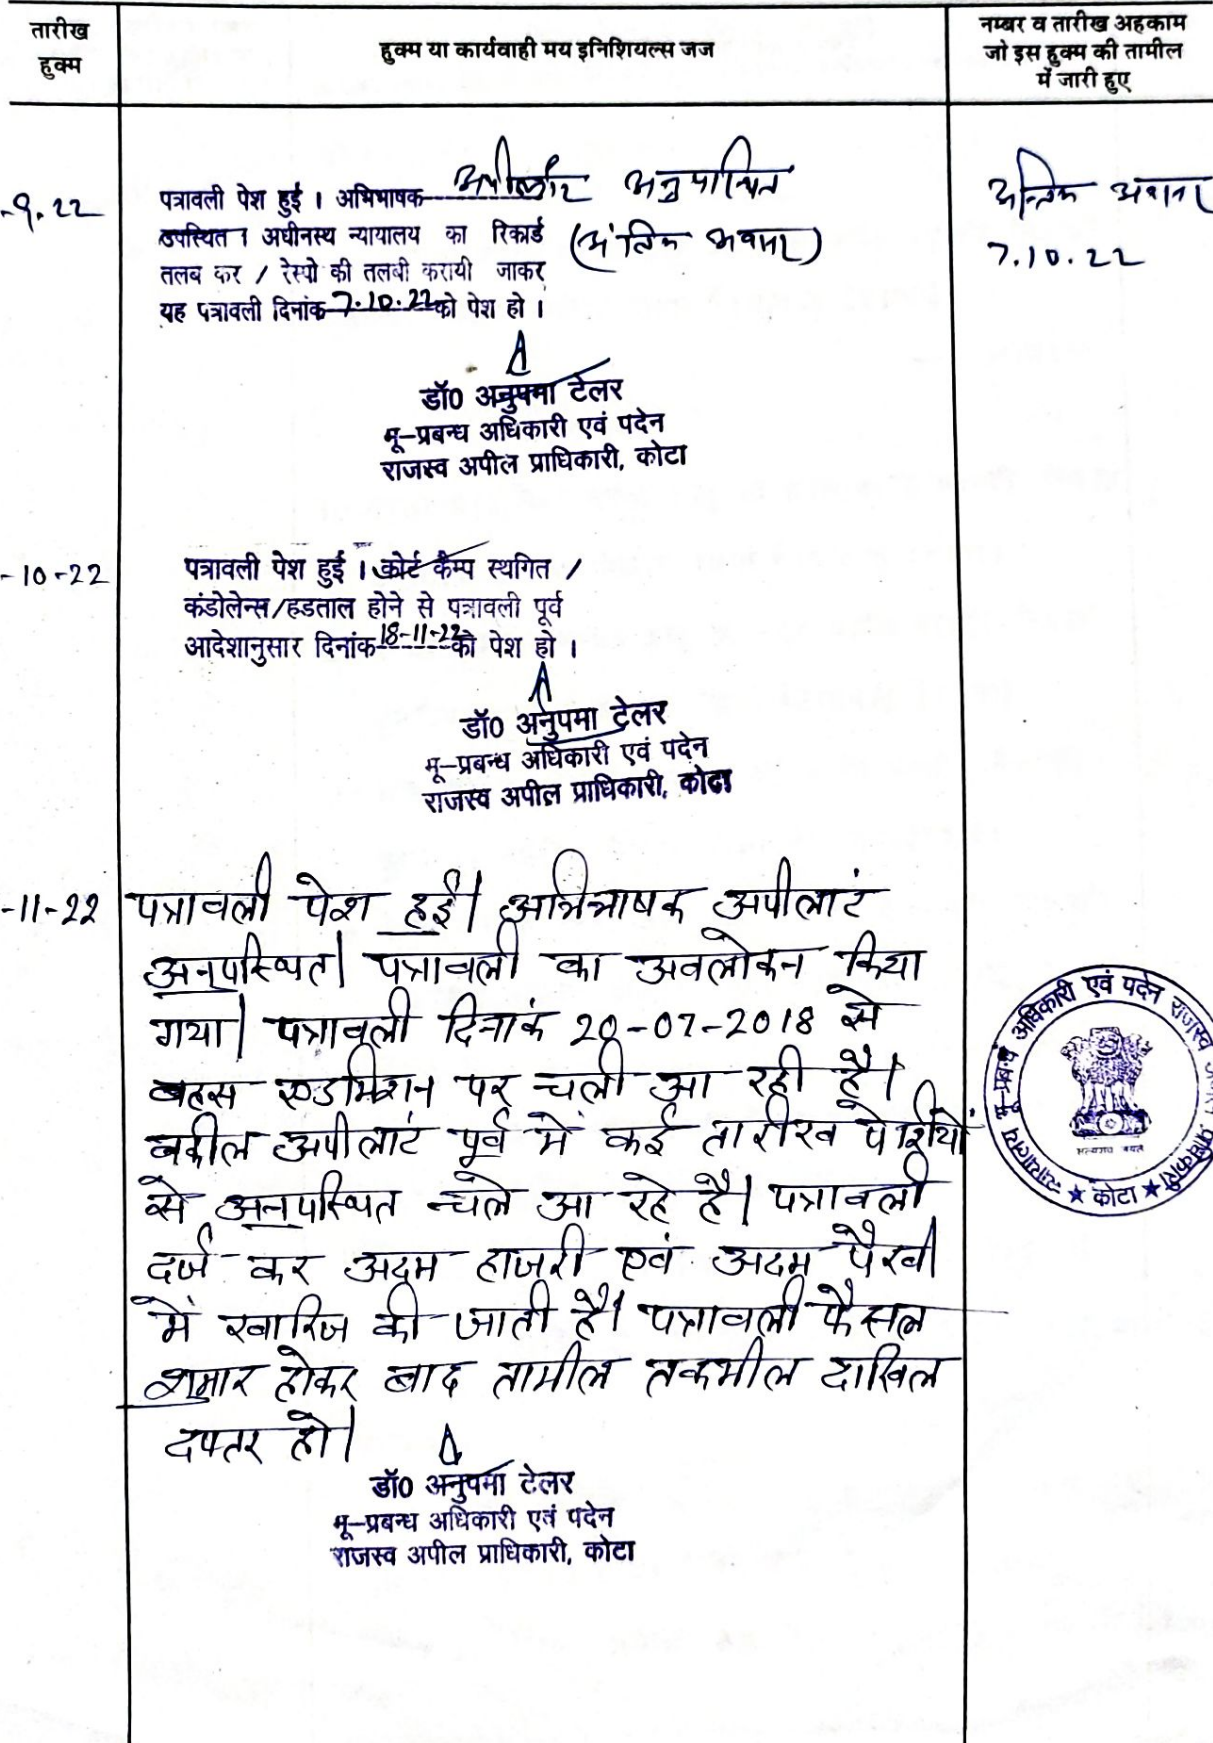 तारीख
हुक्म
हुक्म या कार्यवाही मय इनिशियल्स जज
नम्बर व तारीख अहकाम
जो इस हुक्म की तामील
में जारी हुए
-9-22
पत्रावली पेश हुई । अभिभाषक अपीलांट अनुपस्थित
उपस्थित । अधीनस्थ न्यायालय का रिकार्ड (अंतिम अवसर)
तलब कर / रेस्पो की तलबी करायी जाकर
यह पत्रावली दिनांक 7.10.22 को पेश हो ।
अन्तिम अवसर
7.10.22
डॉ0 अनुपमा टेलर
भू-प्रबन्ध अधिकारी एवं पदेन
राजस्व अपील प्राधिकारी, कोटा
-10-22
पत्रावली पेश हुई । कोर्ट कैम्प स्थगित /
कंडोलेन्स/हडताल होने से पत्रावली पूर्व
आदेशानुसार दिनांक 18-11-22 को पेश हो ।
डॉ0 अनुपमा टेलर
भू-प्रबन्ध अधिकारी एवं पदेन
राजस्व अपील प्राधिकारी, कोटा
-11-22
पत्रावली पेश हुई। अभिभाषक अपीलांट
अनुपस्थित। पत्रावली का अवलोकन किया
गया। पत्रावली दिनांक 20-07-2018 से
बहस एडमिशन पर चली आ रही है।
वकील अपीलांट पूर्व में कई तारीख पेशियों
से अनुपस्थित चले आ रहे है। पत्रावली
दर्ज कर अदम हाजरी एवं अदम पैरवी
में खारिज की जाती है। पत्रावली फैसल
शुमार होकर बाद तामील तकमील दाखिल
दफ्तर हो।
डॉ0 अनुपमा टेलर
भू-प्रबन्ध अधिकारी एवं पदेन
राजस्व अपील प्राधिकारी, कोटा
न्यायालय भू-प्रबन्ध अधिकारी एवं पदेन राजस्व अपील प्राधिकारी
★ कोटा ★
सत्यमेव जयते